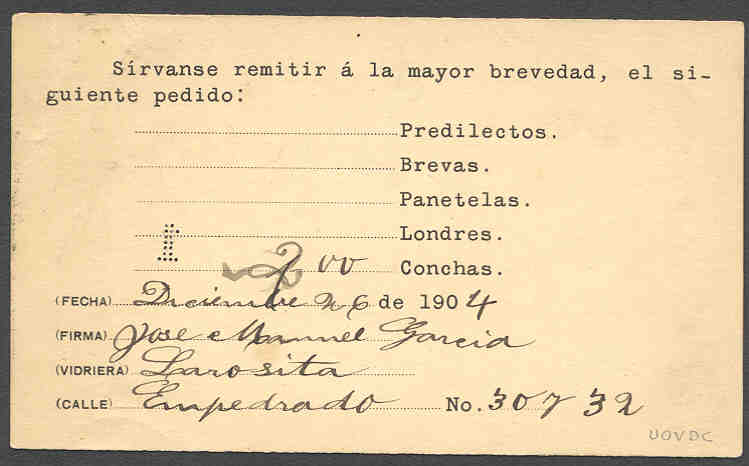 Sírvanse remitir á la mayor brevedad, el si-
guiente pedido:
Predilectos.
Brevas.
Panetelas.
Londres.
200 Conchas.
(FECHA) Diciembre 26 de 1904
(FIRMA) Jose Manuel Garcia
(VIDRIERA) Larosita
(CALLE) Empedrado No. 30 y 32
UOVDC